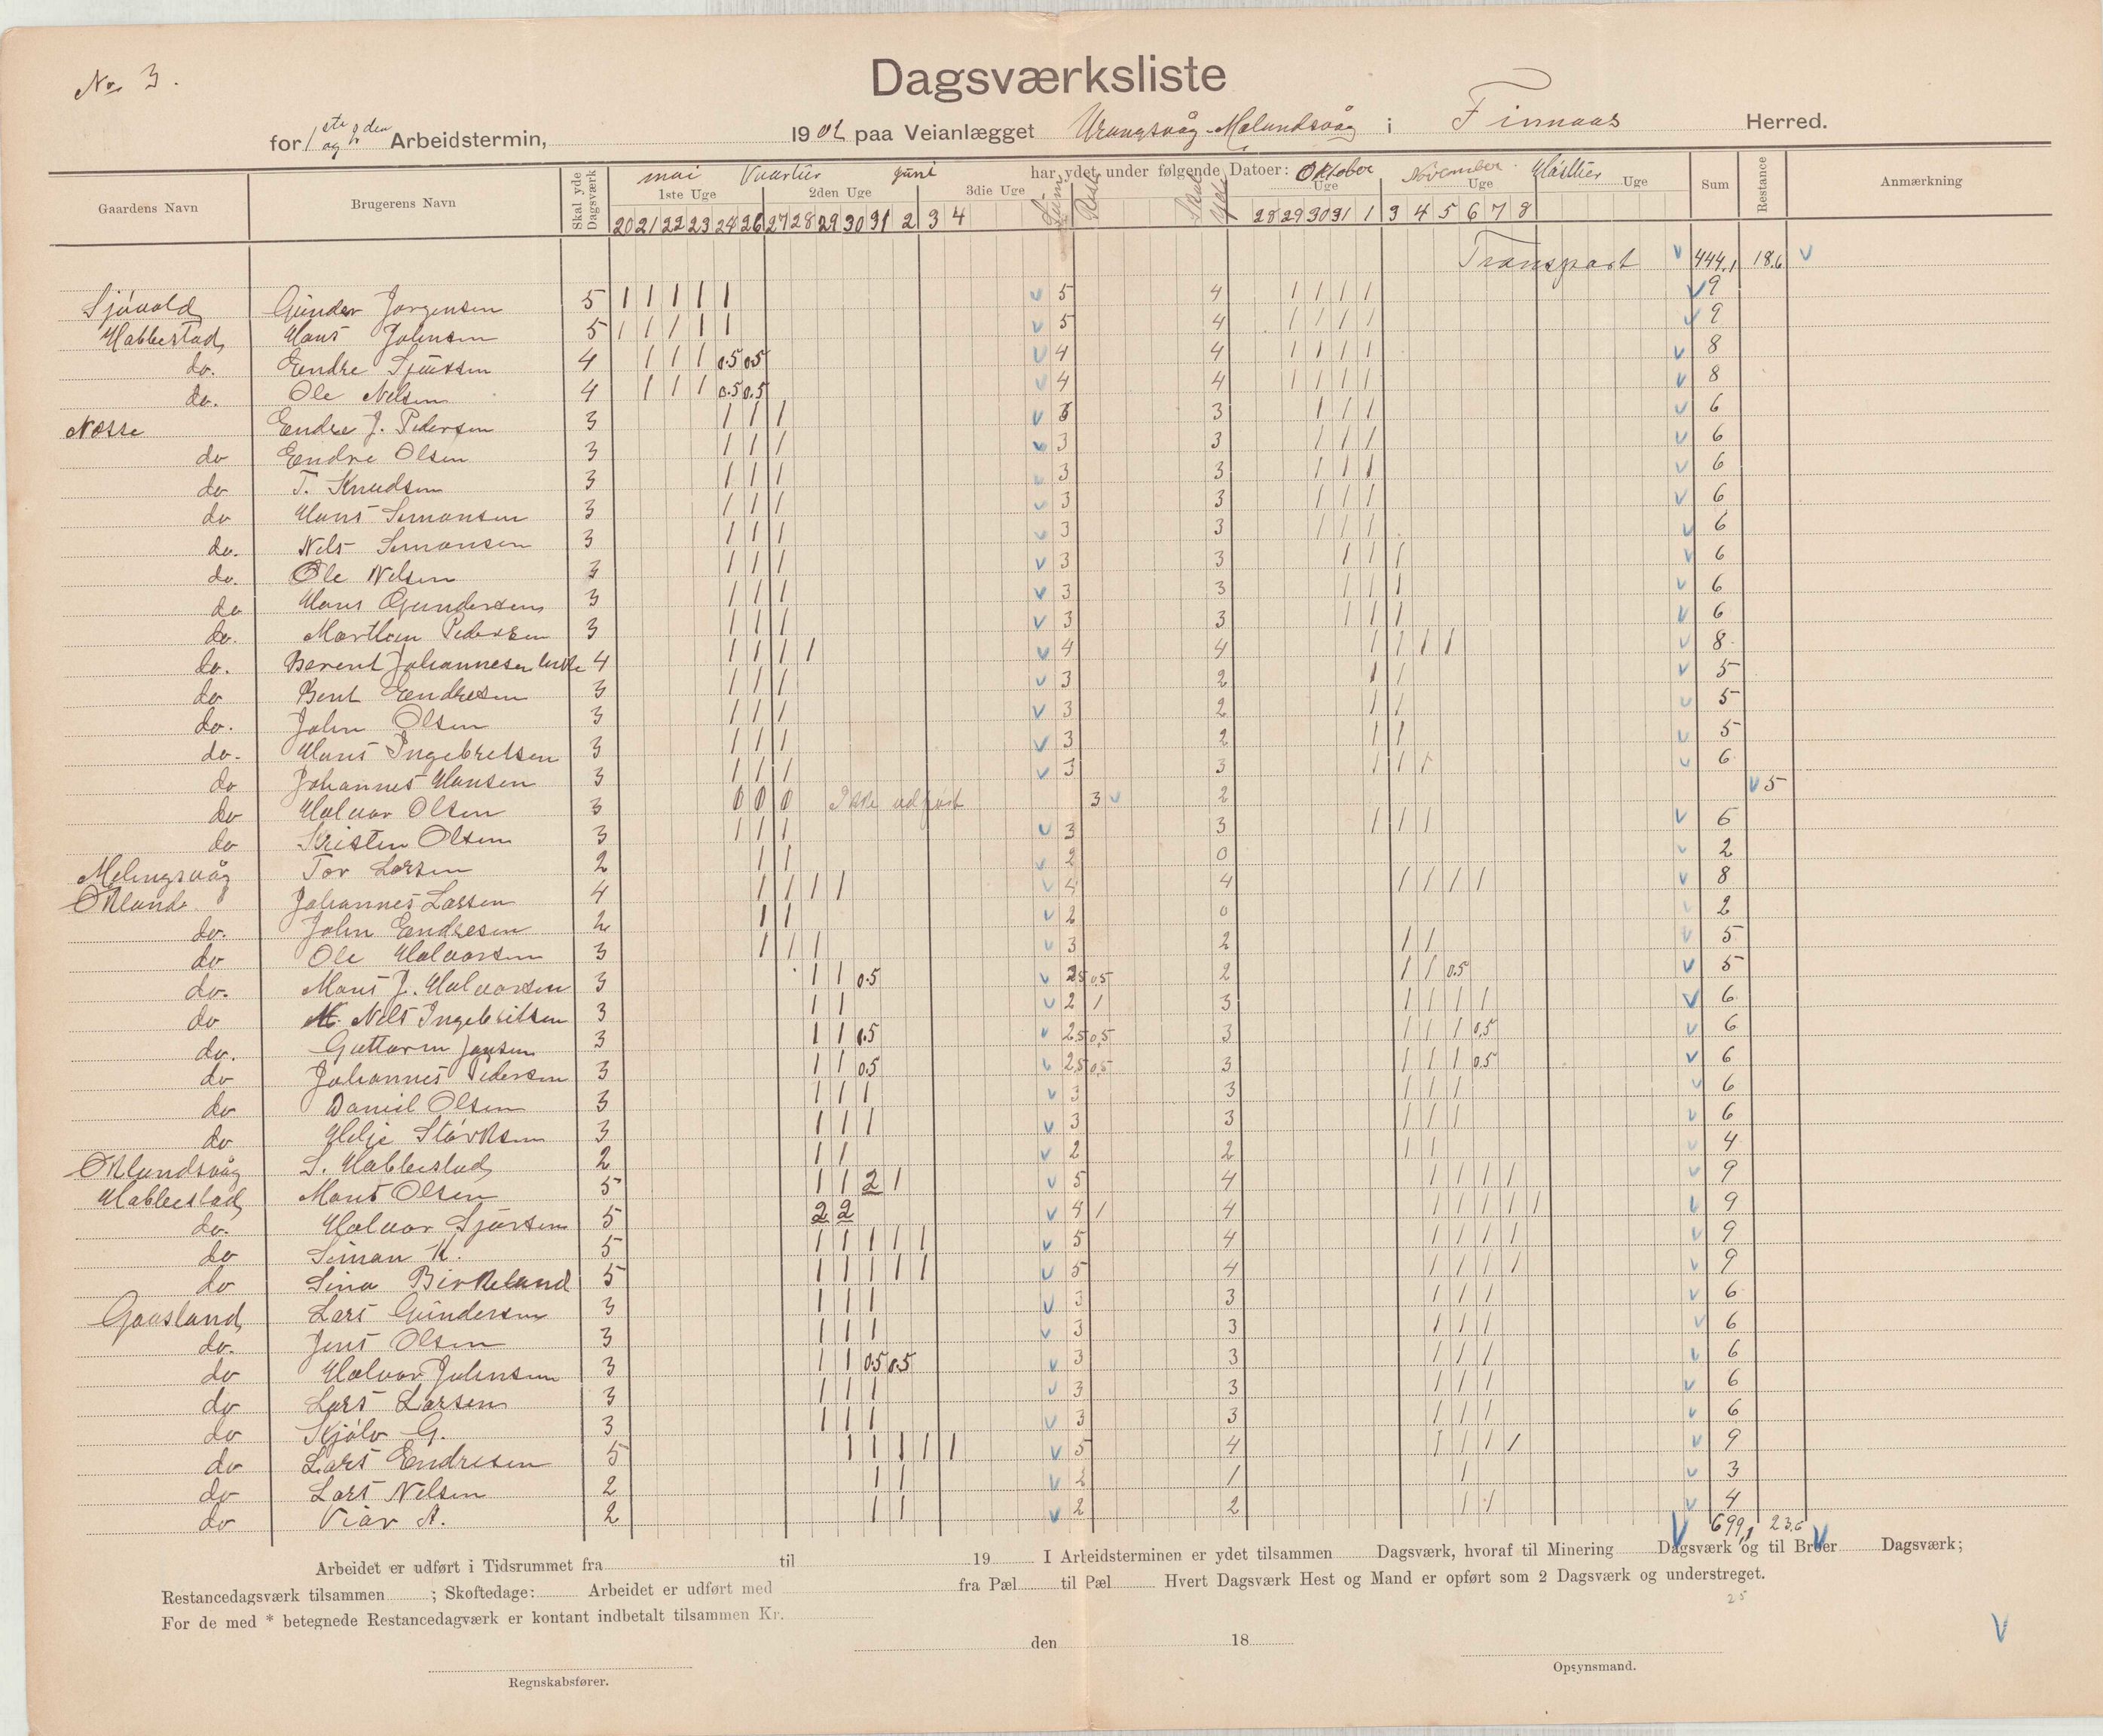 No 3.
Dagsværksliste
for 1ste og 2den Arbeidstermin, 1902 paa Veianlægget Urangsvåg-Melandsvåg i Finnaas Herred.
Gaardens Navn Brugerens Navn Skal yde Dagsværk mai Vaartier juni har ydet under følgende Datoer: Oktober November Høsttier Sum Restance Anmærkning
1ste Uge 2den Uge 3die Uge Sum Rest Skal yde Uge Uge Uge
20 21 22 23 24 26 27 28 29 30 31 2 3 4 28 29 30 31 1 3 4 5 6 7 8
Transport V 444,1 18,6 V
Gunder Jørgensen 5 1 1 1 1 1 V 5 4 1 1 1 1 V 9
Habbestad Hans Johnsen 5 1 1 1 1 1 V 5 4 1 1 1 1 V 9
do. Endre Sjursen 4 1 1 1 0.5 0.5 V 4 4 1 1 1 1 V 8
do. Ole Nelsen 4 1 1 1 0.5 0.5 V 4 4 1 1 1 1 V 8
Nesse Endre J. Pedersen 3 1 1 1 V 3 3 1 1 1 V 6
do Endre Olsen 3 1 1 1 V 3 3 1 1 1 V 6
do T. Knudsen 3 1 1 1 V 3 3 1 1 1 V 6
do Hans Simonsen 3 1 1 1 V 3 3 1 1 1 V 6
do. Nels Simonsen 3 1 1 1 V 3 3 1 1 1 V 6
do. Ole Nelsen 3 1 1 1 V 3 3 1 1 1 V 6
do Hans Gundersen 3 1 1 1 V 3 3 1 1 1 V 6
do. Marthin Pedersen 3 1 1 1 V 3 3 1 1 1 V 6
do. Berent Johannesen 4 1 1 1 1 V 4 4 1 1 1 1 V 8
do Bent Endresen 3 1 1 1 V 3 2 1 1 V 5
do. John Olsen 3 1 1 1 V 3 2 1 1 V 5
do. Hans Ingebretsen 3 1 1 1 V 3 2 1 1 V 5
do Johannes Hansen 3 1 1 1 V 3 3 1 1 1 V 6
do Halvor Olsen 3 0 0 0 Ikke udført 3 V 2 V 5
do Kristen Olsen 3 1 1 1 V 3 3 1 1 1 V 6
Melingsvåg Tor Larsen 2 1 1 V 2 0 V 2
Økland Johannes Larsen 4 1 1 1 1 V 4 4 1 1 1 1 V 8
do. John Endresen 2 1 1 V 2 0 V 2
do Ole Halvorsen 3 1 1 1 V 3 2 1 1 V 5
do. Mons J. Halvorsen 3 1 1 0.5 V 2.5 0.5 2 1 1 0.5 V 5
do Nels Ingebritsen 3 1 1 V 2 1 3 1 1 1 1 V 6
do. Guttorm Jansen 3 1 1 0.5 V 2.5 0,5 3 1 1 1 0,5 V 6
do Johannes Pedersen 3 1 1 0.5 V 2,5 0,5 3 1 1 1 0.5 V 6
do Daniel Olsen 3 1 1 1 V 3 3 1 1 1 V 6
do Helje Størksen 3 1 1 1 V 3 3 1 1 1 V 6
Øklandsvåg S. Habbestad 2 1 1 V 2 2 1 1 V 4
Habbestad Mons Olsen 5 1 1 2 1 V 5 4 1 1 1 1 V 9
do. Halvor Sjursen 5 2 2 V 4 1 4 1 1 1 1 1 V 9
do Siman K. 5 1 1 1 1 1 V 5 4 1 1 1 1 V 9
do Sina Birkeland 5 1 1 1 1 1 V 5 4 1 1 1 1 V 9
Gaasland Lars Gundersen 3 1 1 1 V 3 3 1 1 1 V 6
do. Jens Olsen 3 1 1 1 V 3 3 1 1 1 V 6
do Halvor Johnsen 3 1 1 0.5 0.5 V 3 3 1 1 1 V 6
do Lars Larsen 3 1 1 1 V 3 3 1 1 1 V 6
do Skjålv G. 3 1 1 1 V 3 3 1 1 1 V 6
do Lars Endresen 5 1 1 1 1 1 V 5 4 1 1 1 1 V 9
do Lars Nelsen 2 1 1 V 2 1 1 V 3
do A. 2 1 1 V 2 2 1 1 V 4
V 699,1 23,6 V
Arbeidet er udført i Tidsrummet fra til 19 I Arbeidsterminen er ydet tilsammen Dagsværk, hvoraf til Minering Dagsværk og til Broer Dagsværk;
Restancedagsværk tilsammen ; Skoftedage: Arbeidet er udført med fra Pæl til Pæl Hvert Dagsværk Hest og Mand er opført som 2 Dagsværk og understreget.
For de med * betegnede Restancedagværk er kontant indbetalt tilsammen Kr.
25
V
den 18
Regnskabsfører.
Opsynsmand.